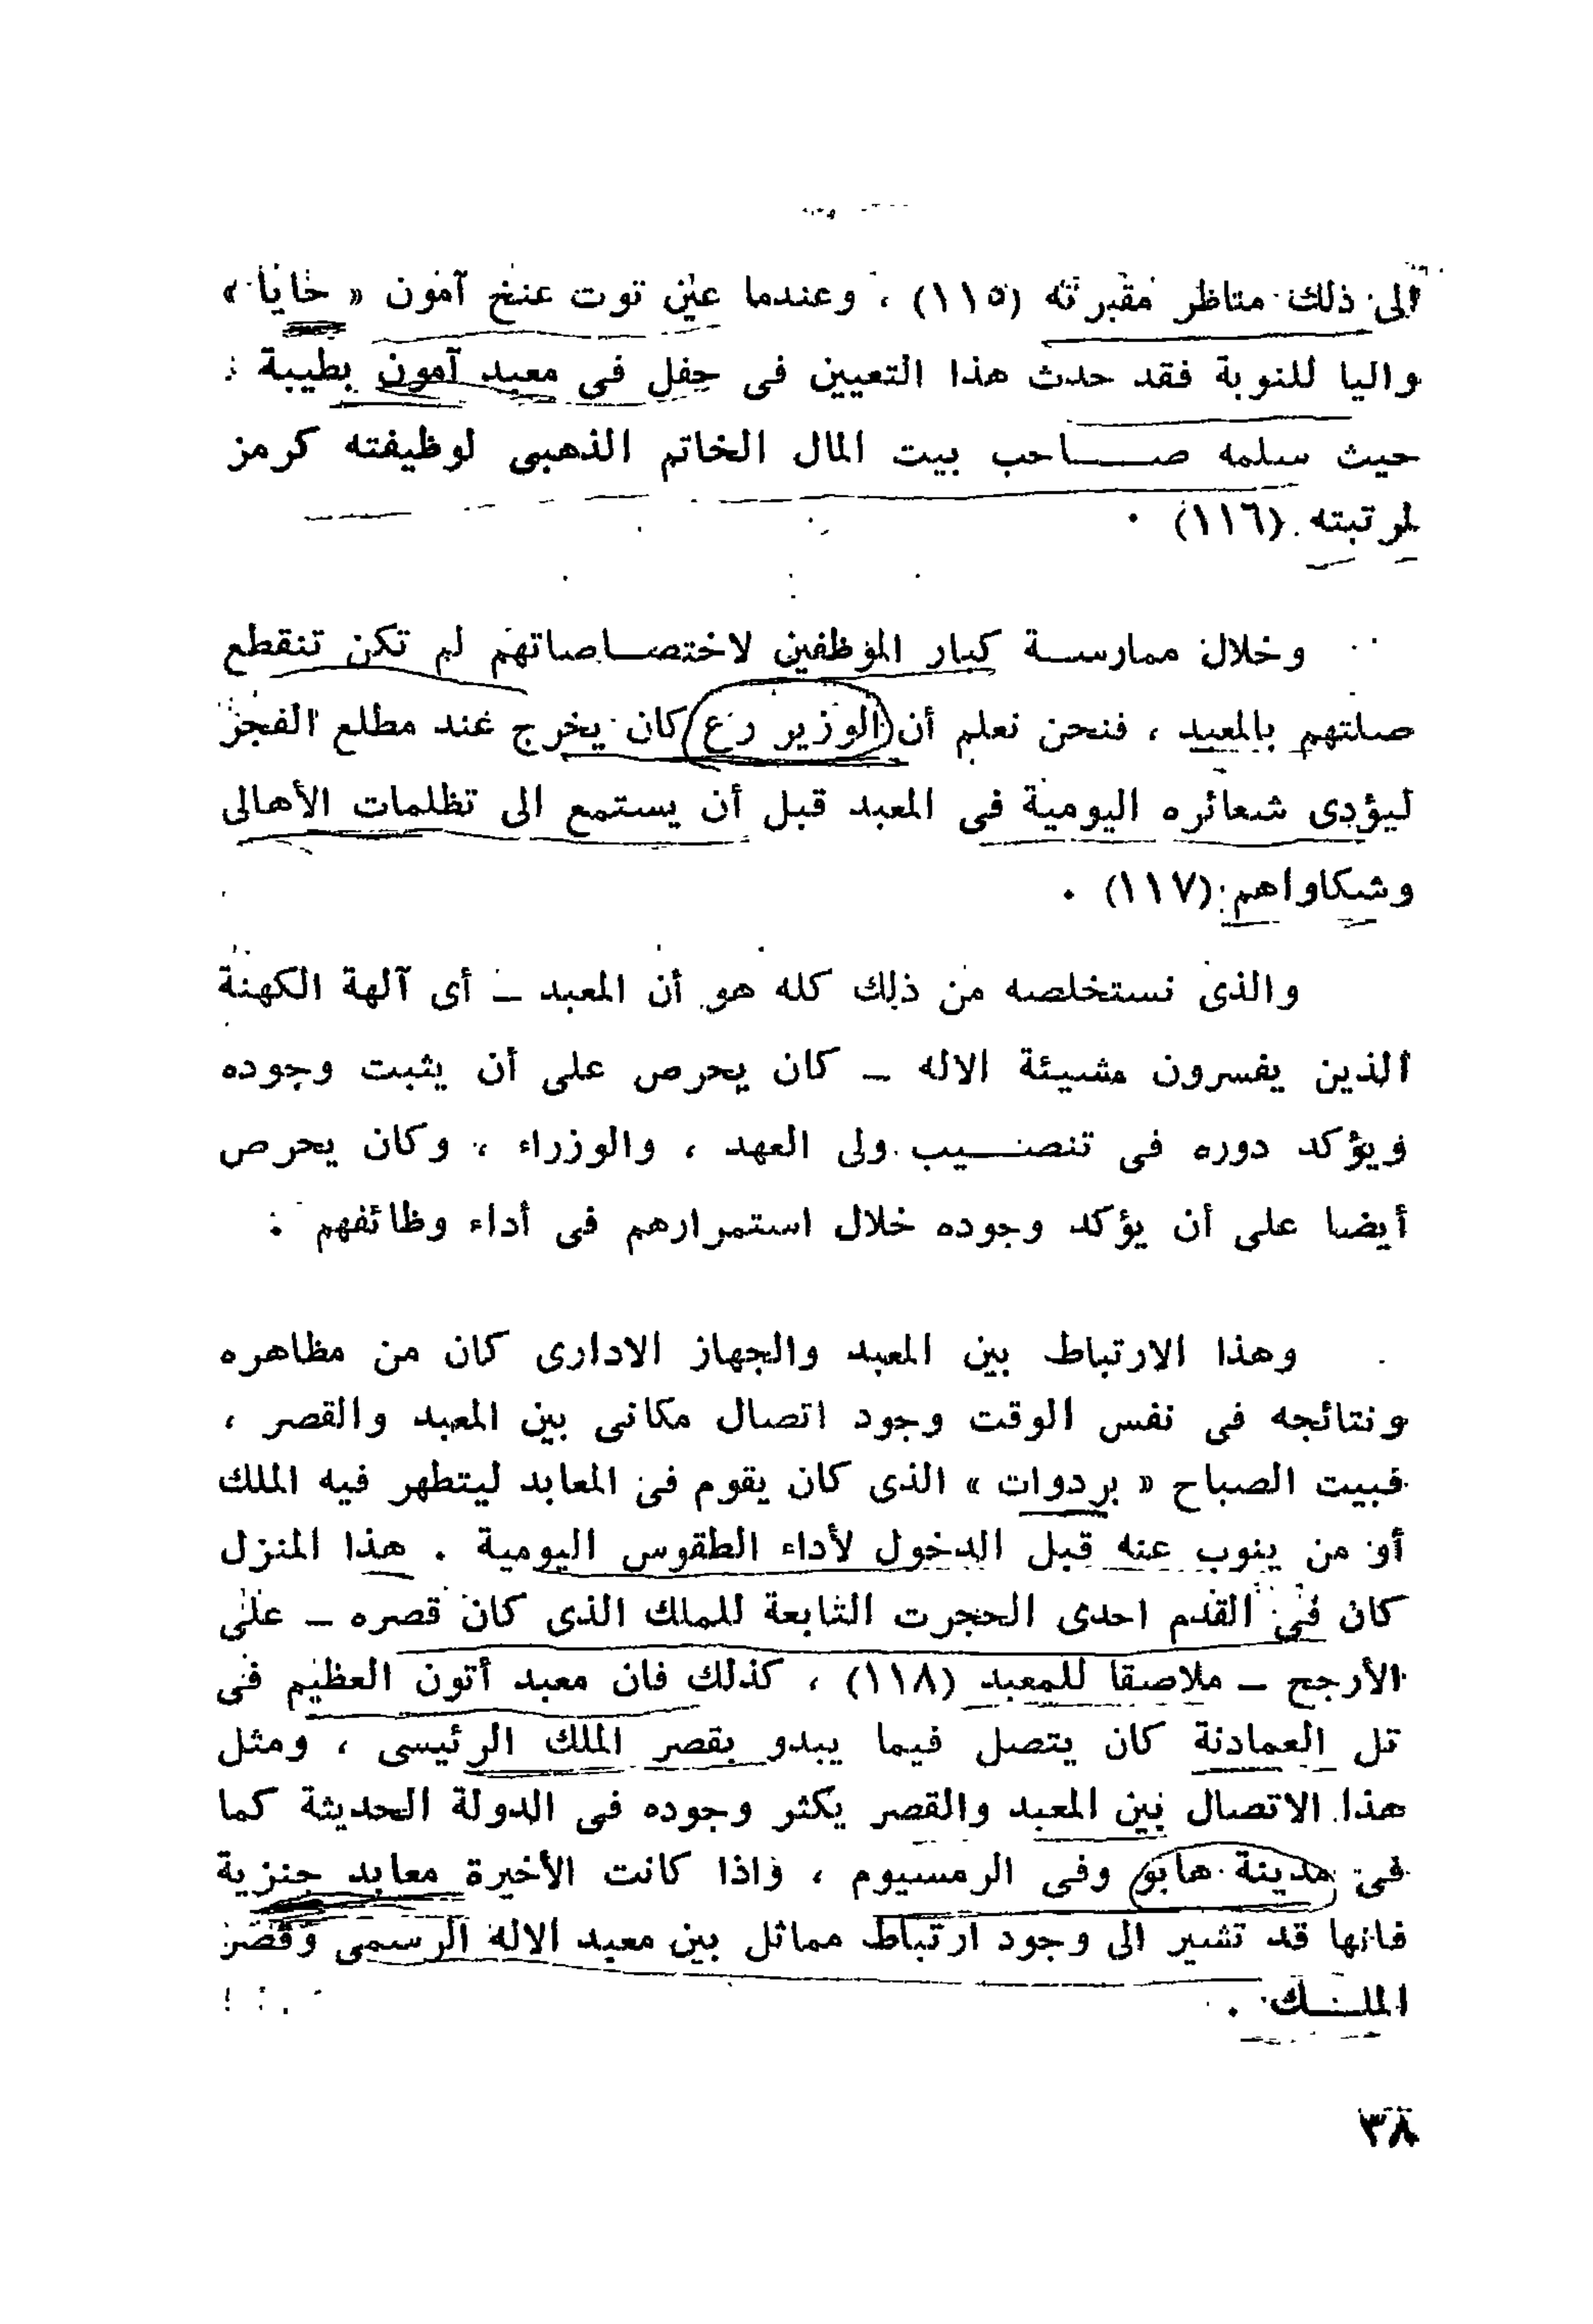 الى ذلك مناظر مقبرته (١١٥) ، وعندما عين توت عنخ آمون « خايا »
واليا للنوبة فقد حدث هذا التعيين فى حفل فى معبد آمون بطيبة :
حيث سلمه صاحب بيت المال الخاتم الذهبى لوظيفته كرمز
لمرتبته (١١٦) .
وخلال ممارسة كبار الموظفين لاختصاصاتهم لم تكن تنقطع
صلتهم بالمعبد ، فنحن نعلم أن الوزير رع كان يخرج عند مطلع الفجر
ليؤدى شعائره اليومية فى المعبد قبل أن يستمع الى تظلمات الأهالى
وشكاواهم (١١٧) .
والذى نستخلصه من ذلك كله هو أن المعبد – أى آلهة الكهنة
الذين يفسرون مشيئة الاله – كان يحرص على أن يثبت وجوده
ويؤكد دوره فى تنصيب ولى العهد ، والوزراء ، وكان يحرص
أيضا على أن يؤكد وجوده خلال استمرارهم فى أداء وظائفهم :
وهذا الارتباط بين المعبد والجهاز الادارى كان من مظاهره
ونتائجه فى نفس الوقت وجود اتصال مكانى بين المعبد والقصر ،
فبيت الصباح « بردوات » الذى كان يقوم فى المعابد ليتطهر فيه الملك
أو من ينوب عنه قبل الدخول لأداء الطقوس اليومية . هذا المنزل
كان فى القدم احدى الحجرت التابعة للملك الذى كان قصره – على
الأرجح – ملاصقا للمعبد (١١٨) ، كذلك فان معبد أتون العظيم فى
تل العمادنة كان يتصل فيما يبدو بقصر الملك الرئيسى ، ومثل
هذا الاتصال بين المعبد والقصر يكثر وجوده فى الدولة الحديثة كما
فى مدينة هابو وفى الرمسيوم ، واذا كانت الأخيرة معابد جنزية
فانها قد تشير الى وجود ارتباط مماثل بين معبد الاله الرسمى وقصر
الملك .
٣٨